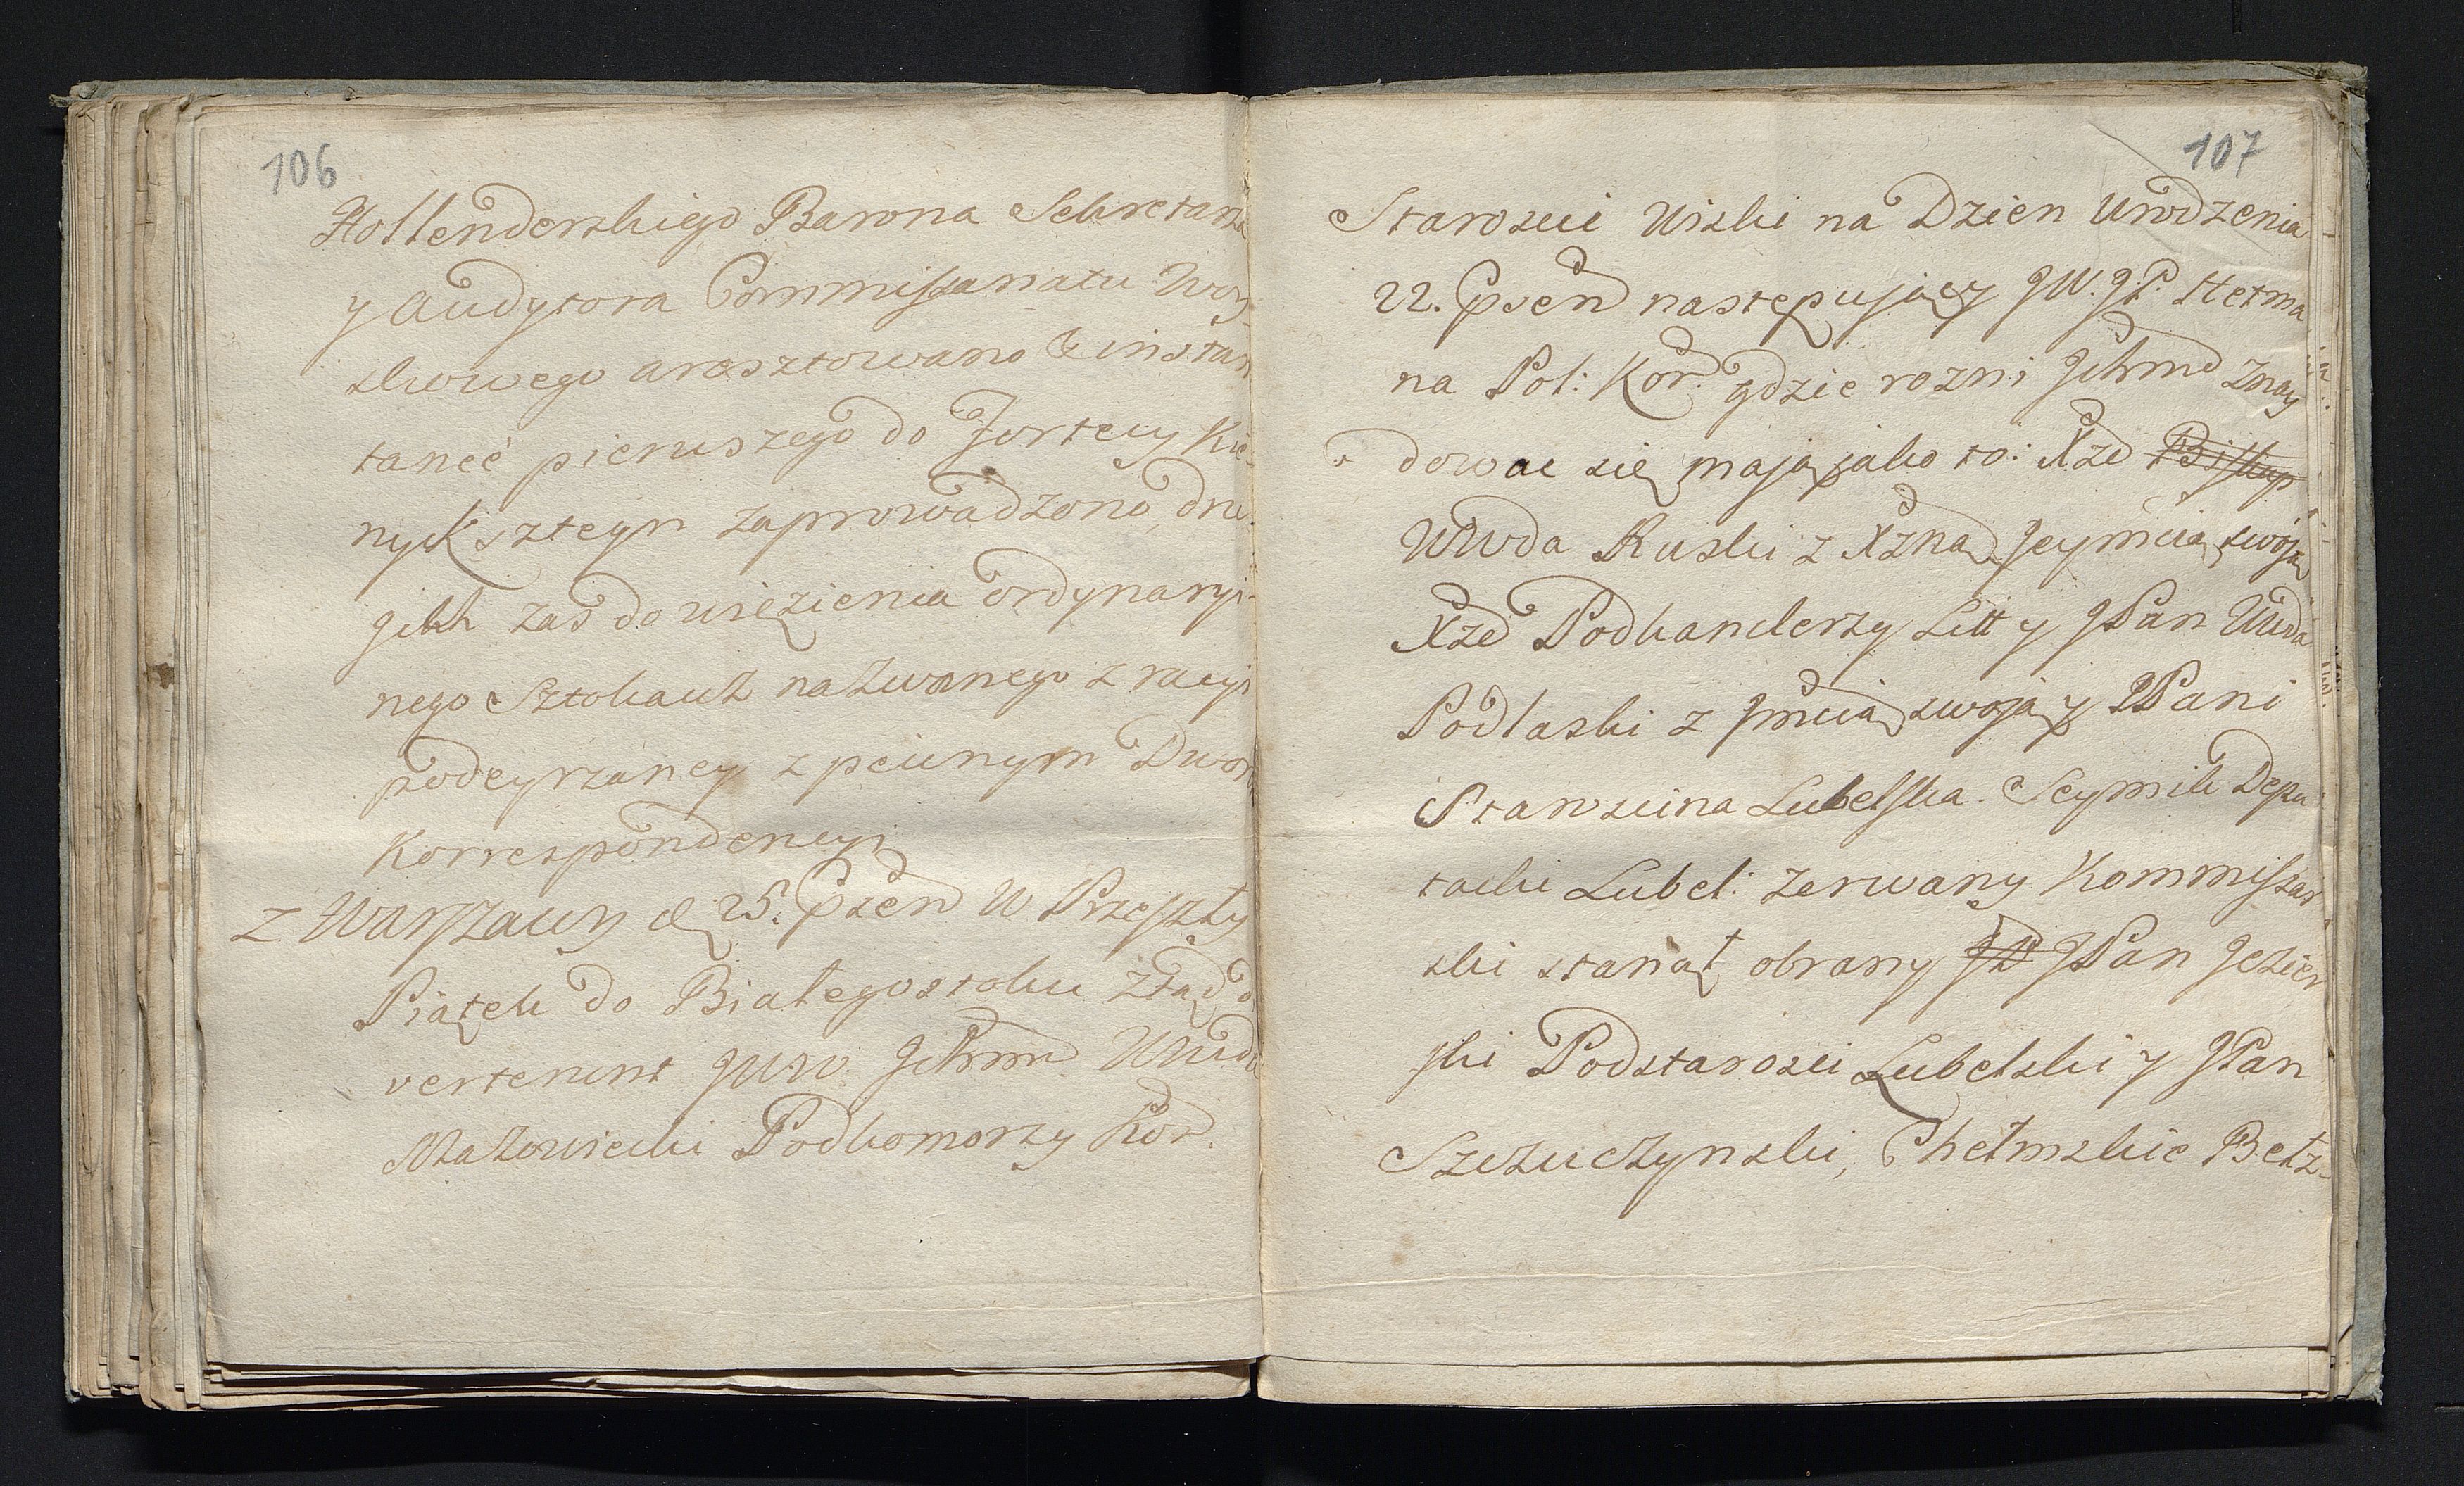 106
Hollenderskiego Barona Sekretarza
y Audytora Commissariatu Woy-
skowego aresztowano & instan
taneé pierwszego do Fortecy Kie-
nykszteyn zaprowadzono, dru-
gich zas do więzienia ordynaryi-
nego Sztokauz nazwanego z racyi
podeyrzaney z pewnym Dworem
Korrespondencyi
z Warszawy d 25. 7bris W Przeszły
Piątek do Białegostoku ztąd
verterunt JWW. Ichmć Wwda
Mazowiecki Podkomorzy Kor.
107
Starosci Wiski na Dzien Urodzenia
22. następujący JW. J.P. Hetma
na Pol: Kor. gdzie rozni Ichmć znay
dowac się mają jako to: Xże Biskup
Wwda Ruski z Xżną Jeymcią swoją
Xże Podkanclerzy Litt y JPan Wwda
Podlaski z Jmcią swoją y JPani
Staroscina Lubelska. Seymik Depu
tacki Lubel: zerwany Kommissar
ski stanął obrany JP JPan Jezier
ski Podstarosci Lubelski y JPan
Szczuczynski, Chełmskie Bełz-